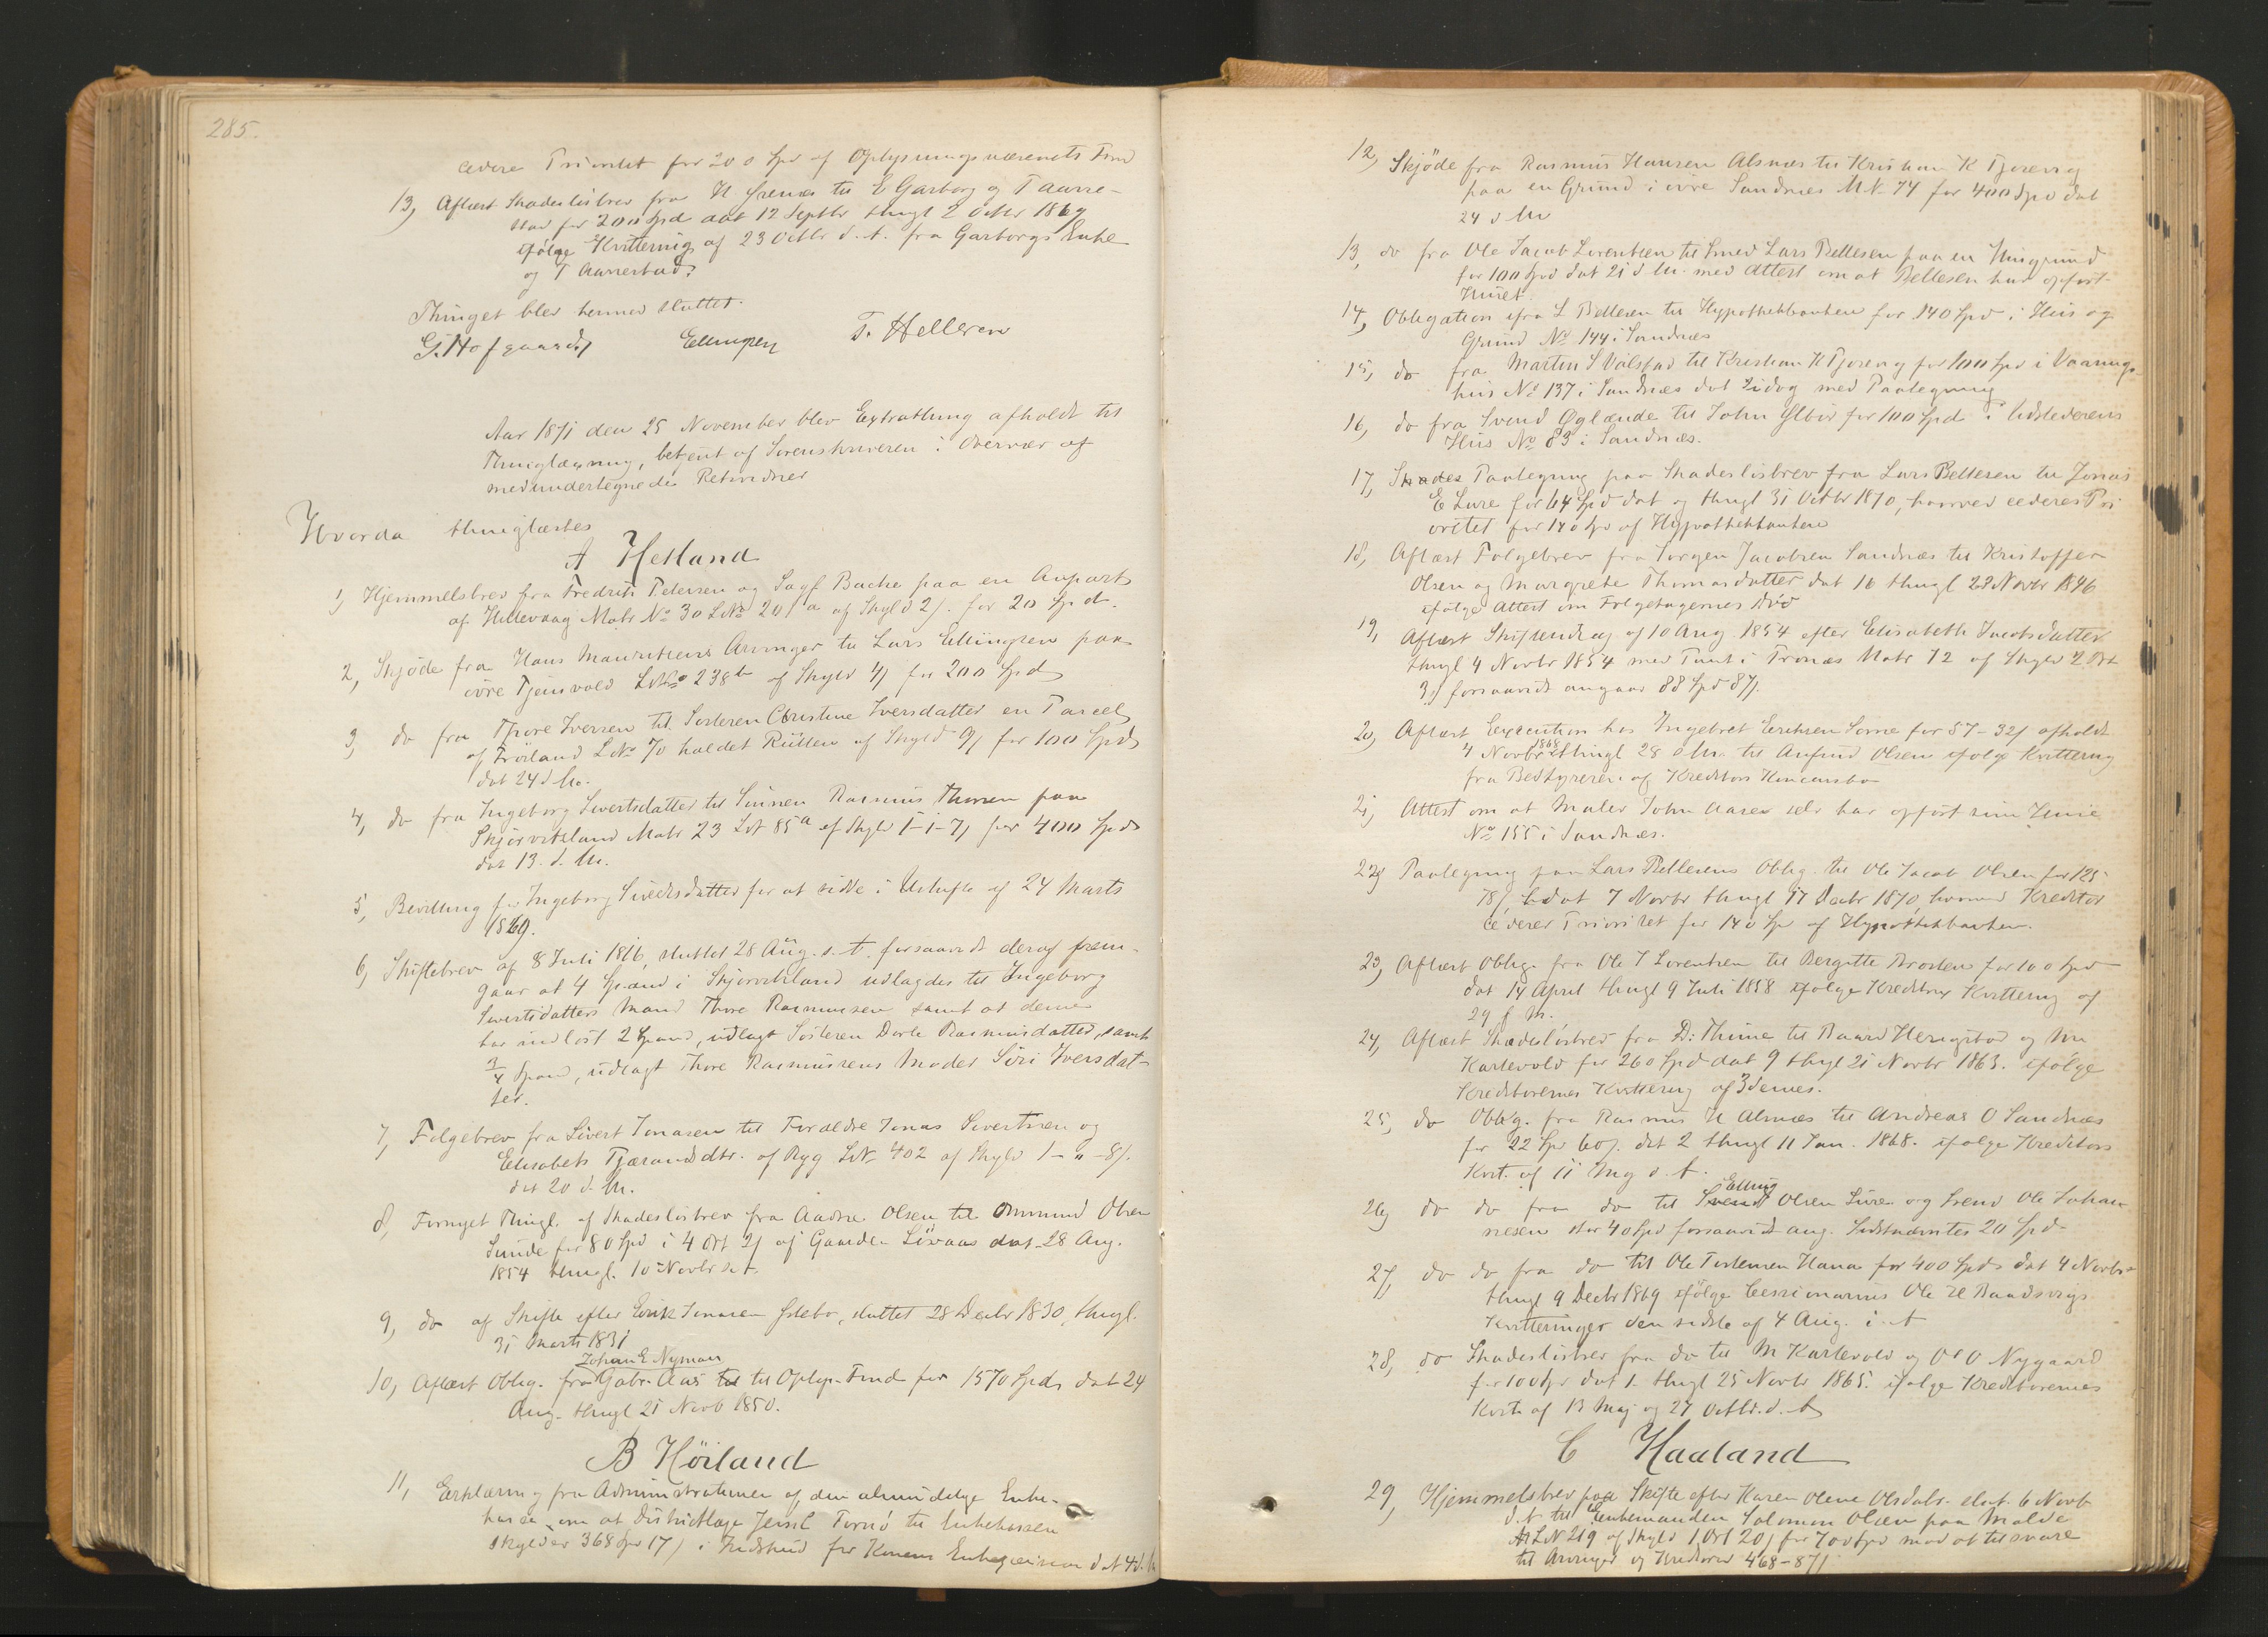 285.
cedere Prioritet for 200 Spd af Oplysningsvæsenets Fond
13, Aflæst Skadeslösbrev fra H Grenes til E Garborg og T Aarre-
stad for 200 Spd dat 12 Septbr thingl 2 Octbr 1869
ifölge Kvittering af 23 Octbr d. A. fra Garborgs Enke
og T Aarrestad.
Thinget blev hermed sluttet.
G. Hofgaard Ellingsen T. Helleren
Aar 1871 den 25 November blev Extrathing afholdt til
Thinglæsning, betjent af Sorenskriveren i Overvær af
medundertegnede Retsvidner
Hvorda thinglæstes
A Hetland
1, Hjemmelsbrev fra Fredrik Petersen og Sagf. Bache paa en Anpart
af Hillevaag Matr No 30 LNo 201 a af Skyld 2 s. for 20 Spd.
2, Skjöde fra Hans Mauritzens Arvinger til Lars Ellingsen paa
övre Tjensvold LNo 238 b af Skyld 4 s for 200 Spd
3, do fra Thore Iversen til Sösteren Christine Iversdatter en Parcel
af Fröiland LNo 70 kaldet Rütlen af Skyld 9 s for 100 Spd
dat 24 d. M.
4, do fra Ingeborg Sivertsdatter til Sönnen Rasmus Thorsen paa
Skjörvesland Matr 23 LN 85 a af Skyld 1-1-7 s for 400 Spd
dat 13. d. M.
5, Bevilling for Ingeborg Sivertsdatter for at sidde i Uskifte af 24 Marts
1869.
6, Skiftebrev af 8 Juli 1816, sluttet 28 Aug. s. A. forsaavidt deraf frem-
gaar at 4 Spand i Skjorvesland udlagdes til Ingeborg
Sivertsdatters Mand Thore Rasmussen samt at denne
har indlöst 2 Spand, udlagt Sösteren Dorte Rasmusdatter, samt
3/4 Spand, udlagt Thore Rasmussens Moder Siri Iversdat-
ter.
7, Folgebrev fra Sivert Jonasen til Forældre Jonas Sivertsen og
Elisabet Tjærandsdtr. af Ryg LN 402 af Skyld 1 - " - 8 s.
dat 20 d. M.
8, Fornyet Thingl. af Skadeslösbrev fra Aadne Olsen til Ommund Olsen
Sunde for 80 Spd i 4 Ort 2 s af Gaarden Livaas dat 28 Aug.
1854 thingl. 10 Novbr s. A.
9, do af Skifte efter Eirik Jonasen Gslebo, sluttet 28 Decbr 1830, thingl.
31 Marts 1831
Johan E Nyman
10, Aflæst Oblig. fra Gabr. Aas til til Oplys. Fond for 1570 Spd dat 24
Aug. thingl 21 Novb 1850.
B Höiland
11, Erklæring fra Administrationen af den almindelige Enke-
kasse om at Districtlæge Jersil Tornö til Enkekassen
skylder 368 Spd 17 s i Indskud for Konens Enkepension dat 4 d. M
12, Skjöde fra Rasmus Hansen Alsnæs til Kristian K Tjorevig
paa en Grund i övre Sandnæs MN 74 for 400 Spd dat
24 d M
13, do fra Ole Jacob Lorentzen til Smed Lars Pettersen paa en Huusgrund
for 100 Spd dat 21 d M. med Attest om at Pettersen har opfört
Huset.
14, Obligation fra L Pettersen til Hypothekbanken for 140 Spd i Huus og
Grund No 144 i Sandnæs
15, do fra Martin S Valstad til Kristian K Tjorevig for 100 Spd i Vaanings-
huus No 137 i Sandnæs dat Idag med Paategning
16, do fra Svend Öglænde til John Ylbör for 100 Spd i Udstederens
Huus No 83 i Sandnæs.
17, Skades Paategning paa Skadeslösbrev fra Lars Pettersen til Jonas
E Lure for 64 Spd dat og thingl 31 Octbr 1870, hvorved cederes Pri
oritet for 140 Spd af Hypothekbanken
18, Aflæst Folgebrev fra Jorgen Jacobsen Sandnæs til Kristoffer
Olsen og Margrete Thomasdatter dat 16 thingl 22 Novbr 1846
ifölge Attest om Folgetagernes Död
19, Aflæst Skifteudlæg af 10 Aug 1854 efter Elisabeth Jacobsdatter
thingl 4 Novbr 1854 med Pant i Tronæs Matr 72 af Skyld 2 Ort
3 s forsaavidt angaar 88 Spd 87 s.
20, Aflæst Execution hos Ingebret Eriksen Somе for 57 - 32 s afholdt
4 Novbr 1868 thingl 28 s M. til Anfind Olsen ifölge Kvittering
fra Bestyreren af Kreditors Koncursbo
21, Attest om at Maler John Aasen selv har opfört sin Huus
No 155 i Sandnæs.
22, Paategning paa Lars Pettersens Oblig. til Ole Jacob Olsen for 125
78 s, dat 7 Novbr thingl 17 Decbr 1870, hvorved Kreditor
cederer Prioritet for 140 Spd af Hypothekbanken.
23, Aflæst Oblig. fra Ole J Lorentzen til Bergitte Brosten for 100 Spd
dat 14 April thingl 9 Juli 1858 ifölge Kreditors Kvittering af
29 f. M.
24, Aflæst Skadeslösbrev fra D. Thime til Baard Herigstad og Mn
Kartevold for 260 Spd dat 9 thingl 21 Novbr 1863. ifölge
Kreditorernes Kvittering af 3 dennes.
25, do Oblig. fra Rasmus H Alsnæs til Andreas O Sandnæs
for 22 Spd 60 s. dat 2 thingl 11 Jan. 1868. ifölge Kreditors
Kvit. af 11 Maj d. A.
26, do do fra do til Svend Elling Olsen Lure og Svend Ole Johan
nesen stor 40 Spd forsaavidt ang. Sidstnævntes 20 Spd
27, do do fra do til Ole Torkelsen Hana for 400 Spd dat 4 Novbr
thingl 9 Decbr 1869 ifölge Cessionarius Ole H Raadsvigs
Kvitteringer den sidste af 4 Aug. i A
28, do Skadeslösbrev fra do til M Kartevold og O O Nygaard
for 100 Spd dat 1. thingl 25 Novbr 1865. ifölge Kreditorernes
Kvit. af 13 Maj og 27 Octbr. d. A
C Haaland
29, Hjemmelsbrev paa Skifte efter Karen Olene Olsdatr. slut. 6 Novb
d. A til Enkemanden Salomon Olsen paa Malde
LN 219 af Skyld 1 Ort 20 s for 700 Spd mod at tilsvare
til Arvinger og Kreditorer 468 - 87 s